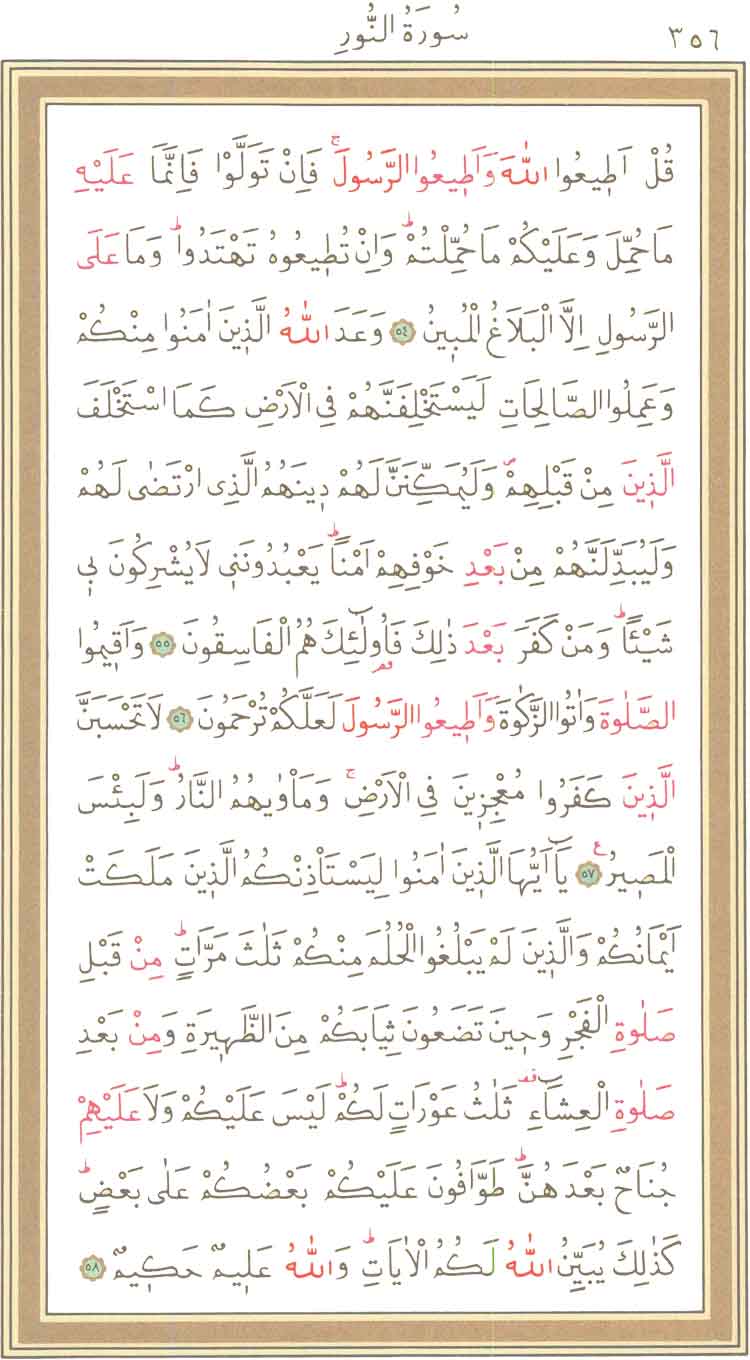 ٣٥٦ سُورَةُ النُّورِ
قُلْ اَط۪يعُوا اللّٰهَ وَاَط۪يعُوا الرَّسُولَۚ فَاِنْ تَوَلَّوْا فَاِنَّمَا عَلَيْهِ
مَا حُمِّلَ وَعَلَيْكُمْ مَا حُمِّلْتُمْۜ وَاِنْ تُط۪يعُوهُ تَهْتَدُواۜ وَمَا عَلَى
الرَّسُولِ اِلَّا الْبَلَاغُ الْمُب۪ينُ ﴿٥٤﴾ وَعَدَ اللّٰهُ الَّذ۪ينَ اٰمَنُوا مِنْكُمْ
وَعَمِلُوا الصَّالِحَاتِ لَيَسْتَخْلِفَنَّهُمْ فِي الْاَرْضِ كَمَا اسْتَخْلَفَ
الَّذ۪ينَ مِنْ قَبْلِهِمْۖ وَلَيُمَكِّنَنَّ لَهُمْ د۪ينَهُمُ الَّذِي ارْتَضٰى لَهُمْ
وَلَيُبَدِّلَنَّهُمْ مِنْ بَعْدِ خَوْفِهِمْ اَمْنًاۜ يَعْبُدُونَن۪ي لَا يُشْرِكُونَ ب۪ي
شَيْـًٔاۜ وَمَنْ كَفَرَ بَعْدَ ذٰلِكَ فَاُو۬لٰٓئِكَ هُمُ الْفَاسِقُونَ ﴿٥٥﴾ وَاَق۪يمُوا
الصَّلٰوةَ وَاٰتُوا الزَّكٰوةَ وَاَط۪يعُوا الرَّسُولَ لَعَلَّكُمْ تُرْحَمُونَ ﴿٥٦﴾ لَا تَحْسَبَنَّ
الَّذ۪ينَ كَفَرُوا مُعْجِز۪ينَ فِي الْاَرْضِۚ وَمَأْوٰيهُمُ النَّارُۜ وَلَبِئْسَ
الْمَص۪يرُ۟ ﴿٥٧﴾ يَٓا اَيُّهَا الَّذ۪ينَ اٰمَنُوا لِيَسْتَأْذِنْكُمُ الَّذ۪ينَ مَلَكَتْ
اَيْمَانُكُمْ وَالَّذ۪ينَ لَمْ يَبْلُغُوا الْحُلُمَ مِنْكُمْ ثَلٰثَ مَرَّاتٍۜ مِنْ قَبْلِ
صَلٰوةِ الْفَجْرِ وَح۪ينَ تَضَعُونَ ثِيَابَكُمْ مِنَ الظَّه۪يرَةِ وَمِنْ بَعْدِ
صَلٰوةِ الْعِشَٓاءِ ثَلٰثُ عَوْرَاتٍ لَكُمْۜ لَيْسَ عَلَيْكُمْ وَلَا عَلَيْهِمْ
جُنَاحٌ بَعْدَهُنَّۜ طَوَّافُونَ عَلَيْكُمْ بَعْضُكُمْ عَلٰى بَعْضٍۜ
كَذٰلِكَ يُبَيِّنُ اللّٰهُ لَكُمُ الْاٰيَاتِۜ وَاللّٰهُ عَل۪يمٌ حَك۪يمٌ ﴿٥٨﴾